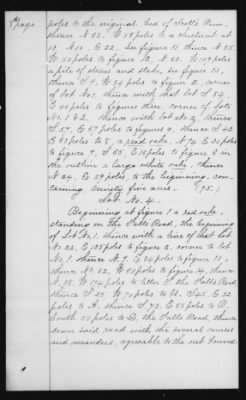 8" page
poles to the original bed of Falls Run,
thence N 02. W 58 poles to a chestnut at
10, N 20, E 22, in figure 11, thence N 28.
W 50 poles to figure 12, N 52. W 109 poles
a pile of stones and stake, in figure 13,
thence S 7. W 34 poles to figure 2, corner
of Lot No 1, thence with that lot S 84
E 40 poles to figures three, corner of Lots
No. 1 & 2. thence with Lot No 2, thence
S 57, E 57 poles to figure 4, thence S 42
E 53 poles to 8, a read oake, N 76 E 30 poles
to figure 7, S 65, E 18 poles to figure 8 in
the outline a large white oake, thence
N 24, E 59 poles, to the beginning, con-
taining, ninety five acres. (95;)
Lot No. 4.
Beginning at figure 1 a red oake,
standing on the Falls Road, the beginning
of Lot No. 1, thence with a line of that lot
No 84, E 138 poles to figure 2, corner to lot
No 1. thence N 7, E 34 poles to figure 13,
thence No 52, W 60 poles to figure 14, thence
S W 174 poles to Eller S the Falls Road
thence S 25, W 70 poles to H, S 45, E 32
poles to A, thence S 73, E 58 poles to B,
South 59 poles to D. the Falls Road, thence
down said road with the several courses
and meanders, agreeable to the out bound